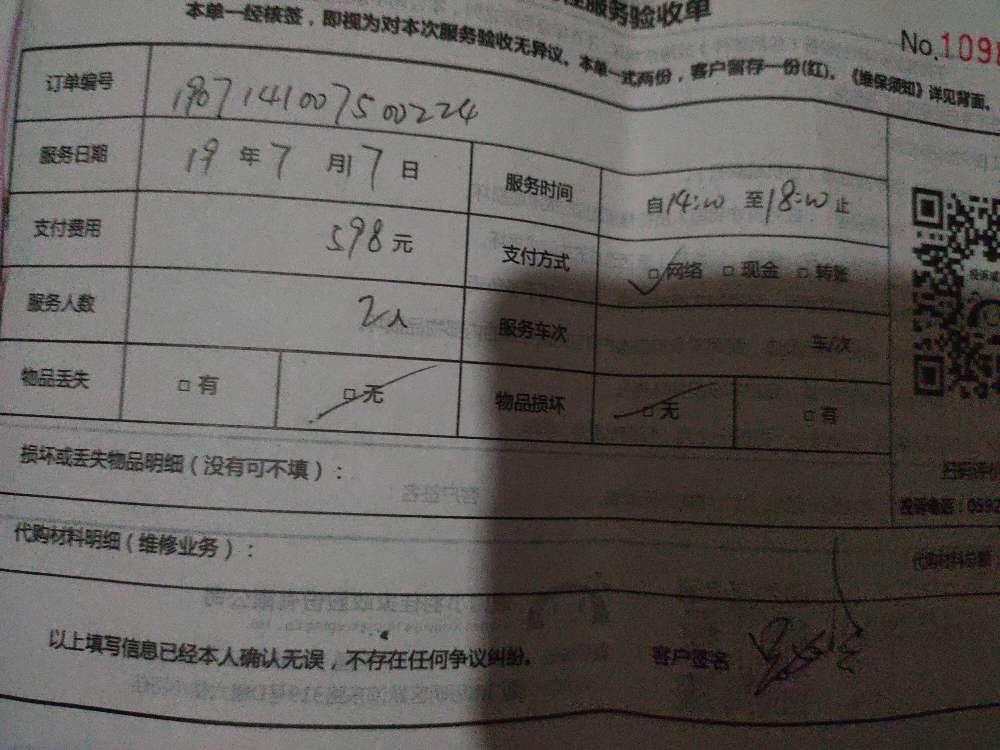 服务验收单
本单一经核签，即视为对本次服务验收无异议。本单一式两份，客户留存一份(红)。《维保须知》详见背面。
No.1098
订单编号 1907141007500224
服务日期 19年7月17日 服务时间 自14:00至18:00止
支付费用 598元 支付方式 □网络 □现金 □转账
服务人数 2人 服务车次 车/次
物品丢失 □有 □无 物品损坏 □无 □有
损坏或丢失物品明细（没有可不填）：
扫码评价
投诉电话：0592
代购材料明细（维修业务）：
代购材料总额
以上填写信息已经本人确认无误，不存在任何争议纠纷。 客户签名